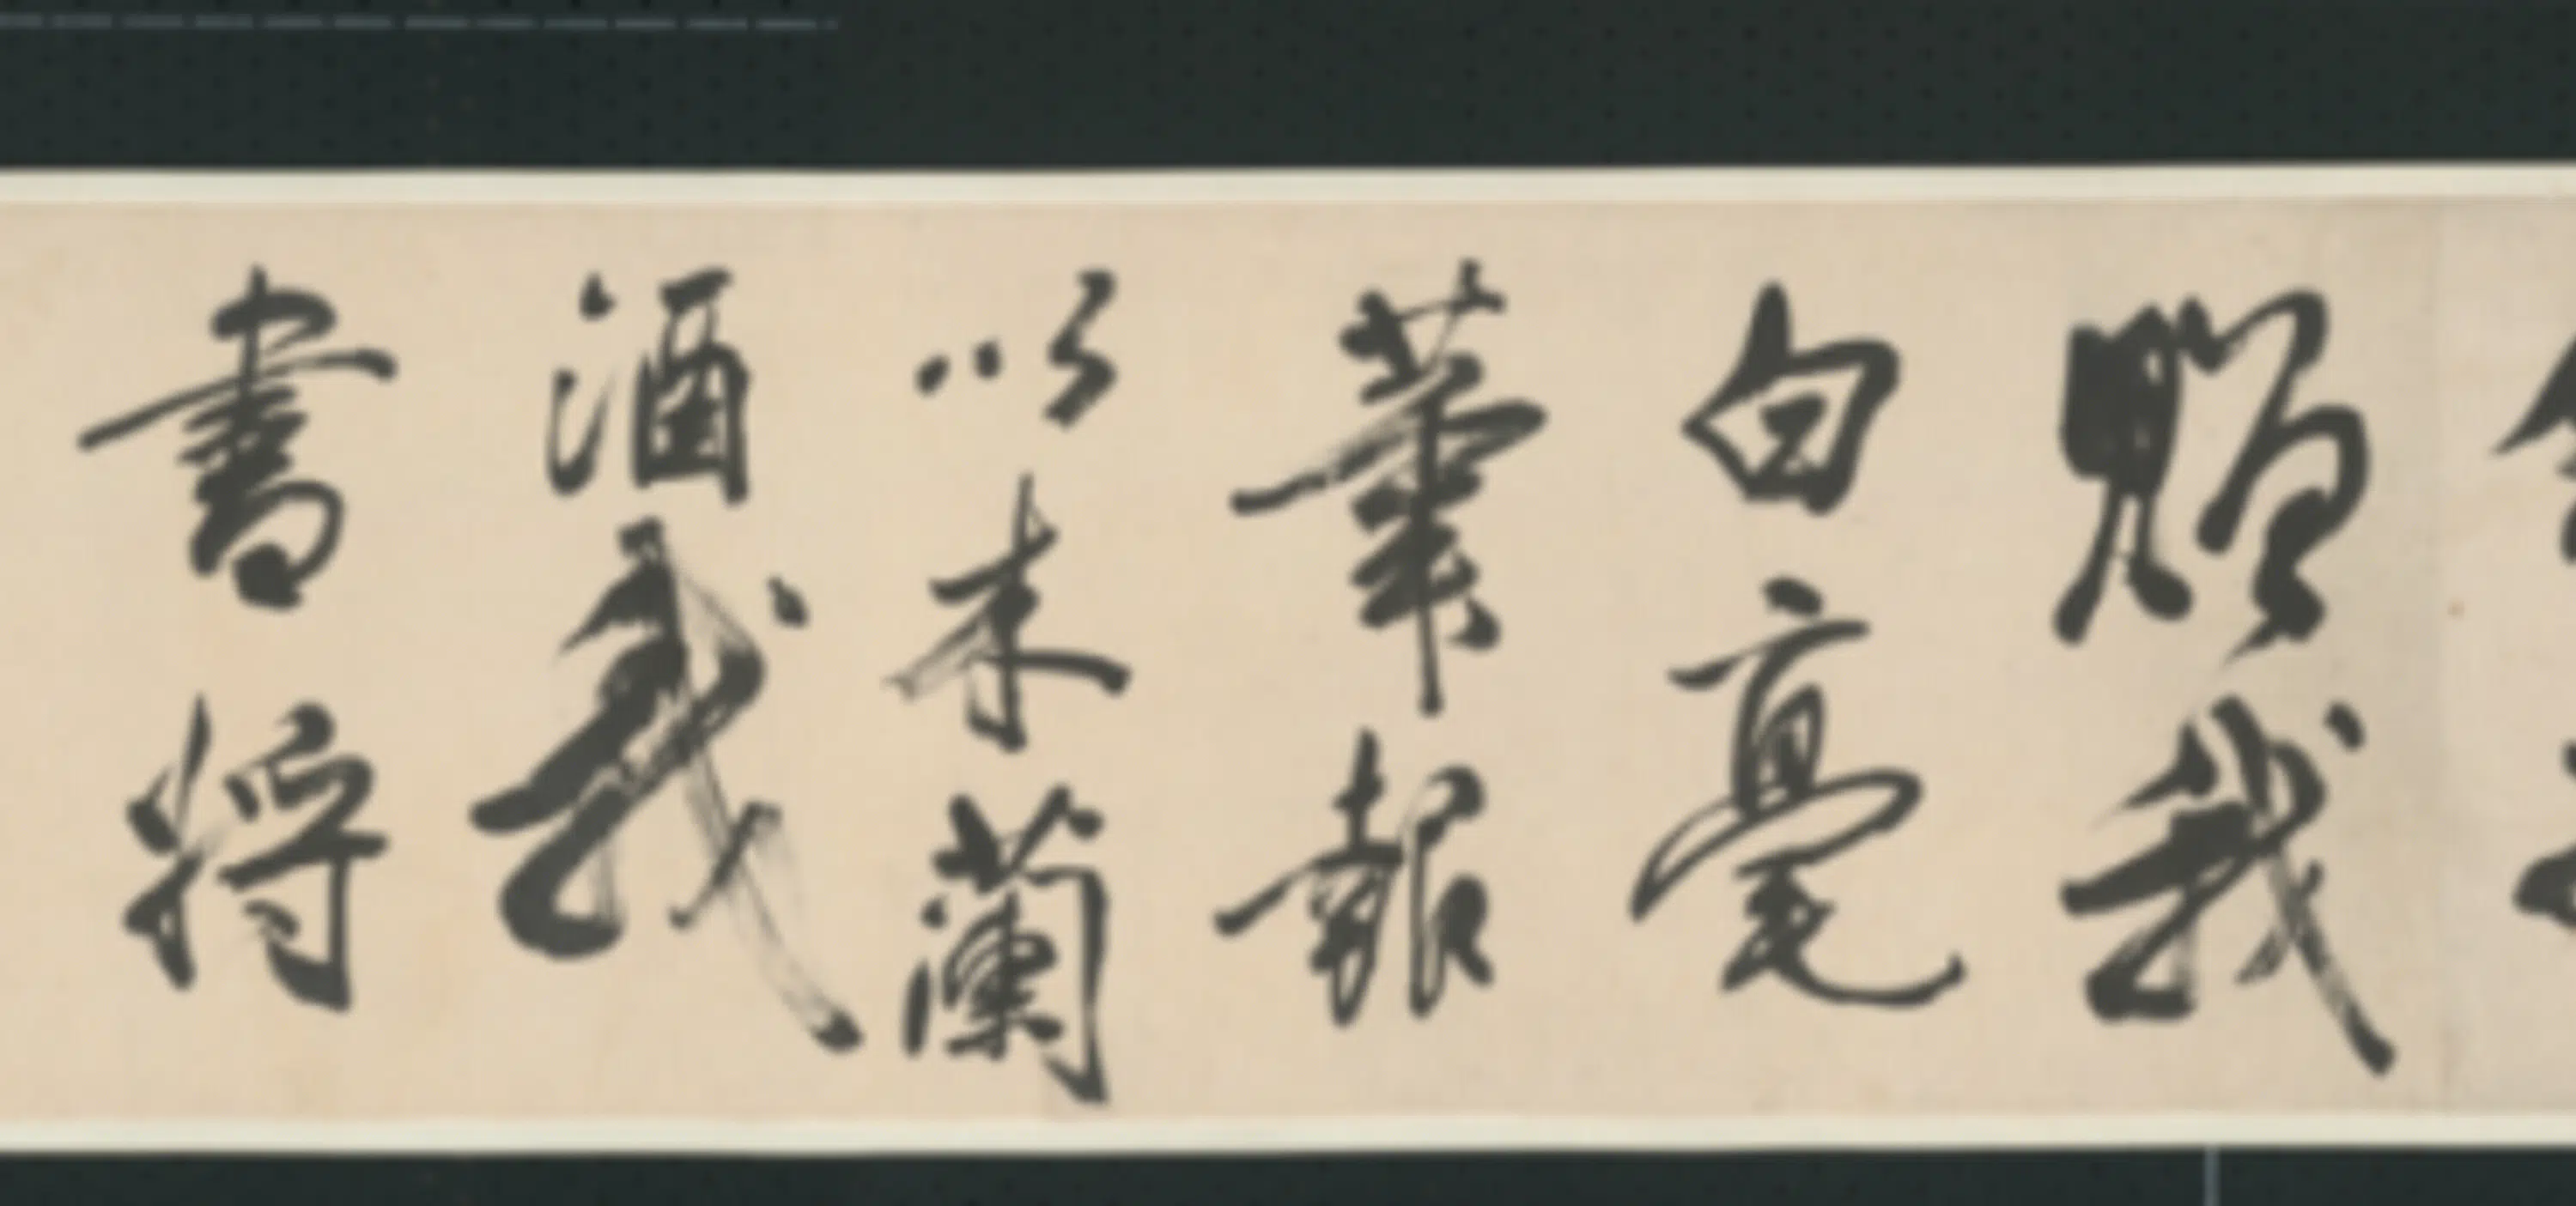 貺我
白毫
筆報
以木蘭
酒我
書將